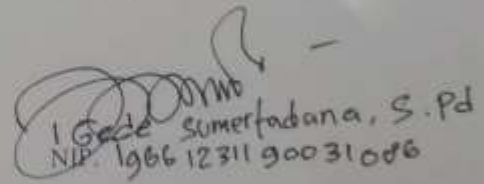 I Gede Sumertadana, S.Pd
NIP. 196612311990031086